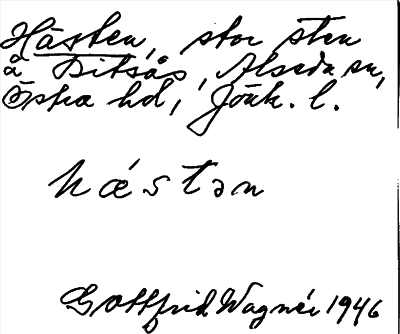 Hästen, stor sten
å Bitsås, Alseda sn,
Östra hd, Jönk. l.
hæstən
Gottfrid Wagnér 1946